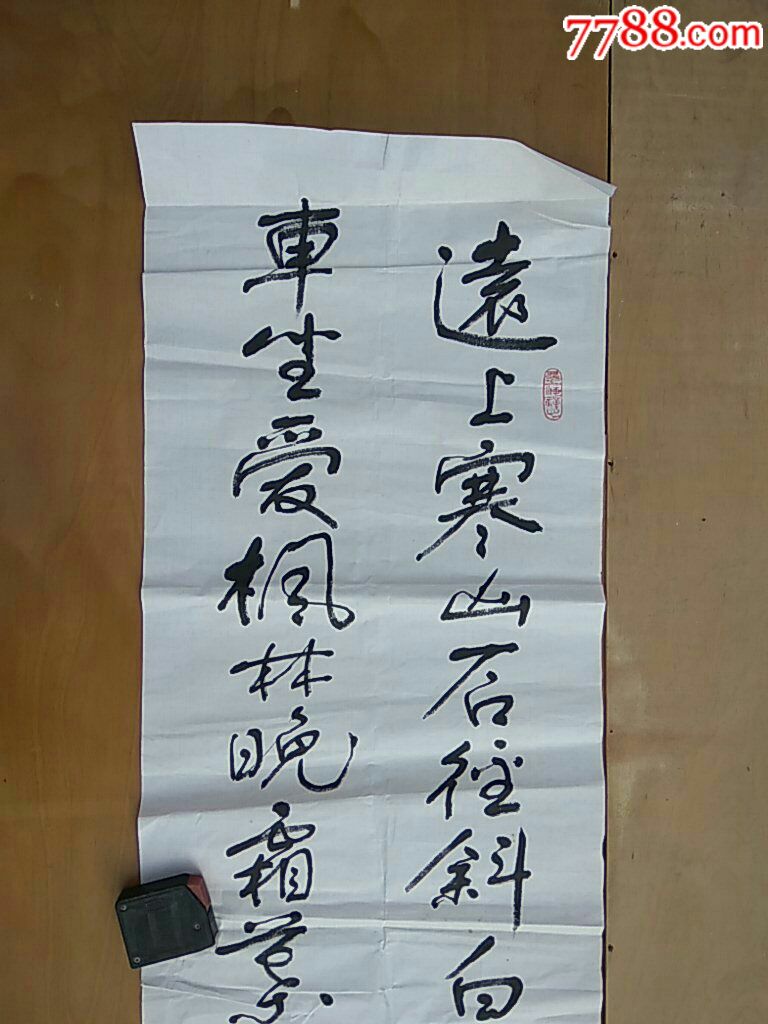 7788.com
遠上寒山石径斜白
車坐爱楓林晚霜葉